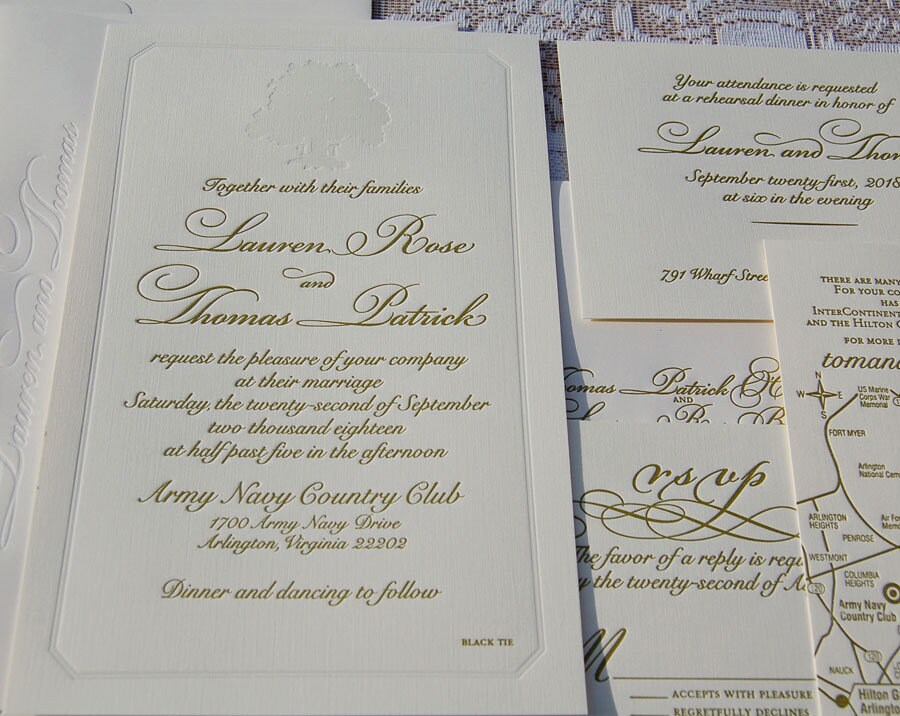 Together with their families
Lauren Rose
and
Thomas Patrick
request the pleasure of your company
at their marriage
Saturday, the twenty-second of September
two thousand eighteen
at half past five in the afternoon
Army Navy Country Club
1700 Army Navy Drive
Arlington, Virginia 22202
Dinner and dancing to follow
BLACK TIE
Lauren and Thomas
Your attendance is requested
at a rehearsal dinner in honor of
Lauren and
September twenty-first, 2018
at six in the evening
791 Wharf
THERE ARE MANY
FOR YOUR
HAS
AND THE HILTON
FOR MORE
N
W E
S
US Marine
Corps War
Memorial
FORT MYER
Arlington
National
ARLINGTON
HEIGHTS
PENROSE
WESTMONT
COLUMBIA
HEIGHTS
120
Army Navy
Country Club
120
NAUCK
Hilton
Patrick
AND
rsvp
The favor of a reply is
by the twenty-second of
M
ACCEPTS WITH PLEASURE
REGRETFULLY DECLINES